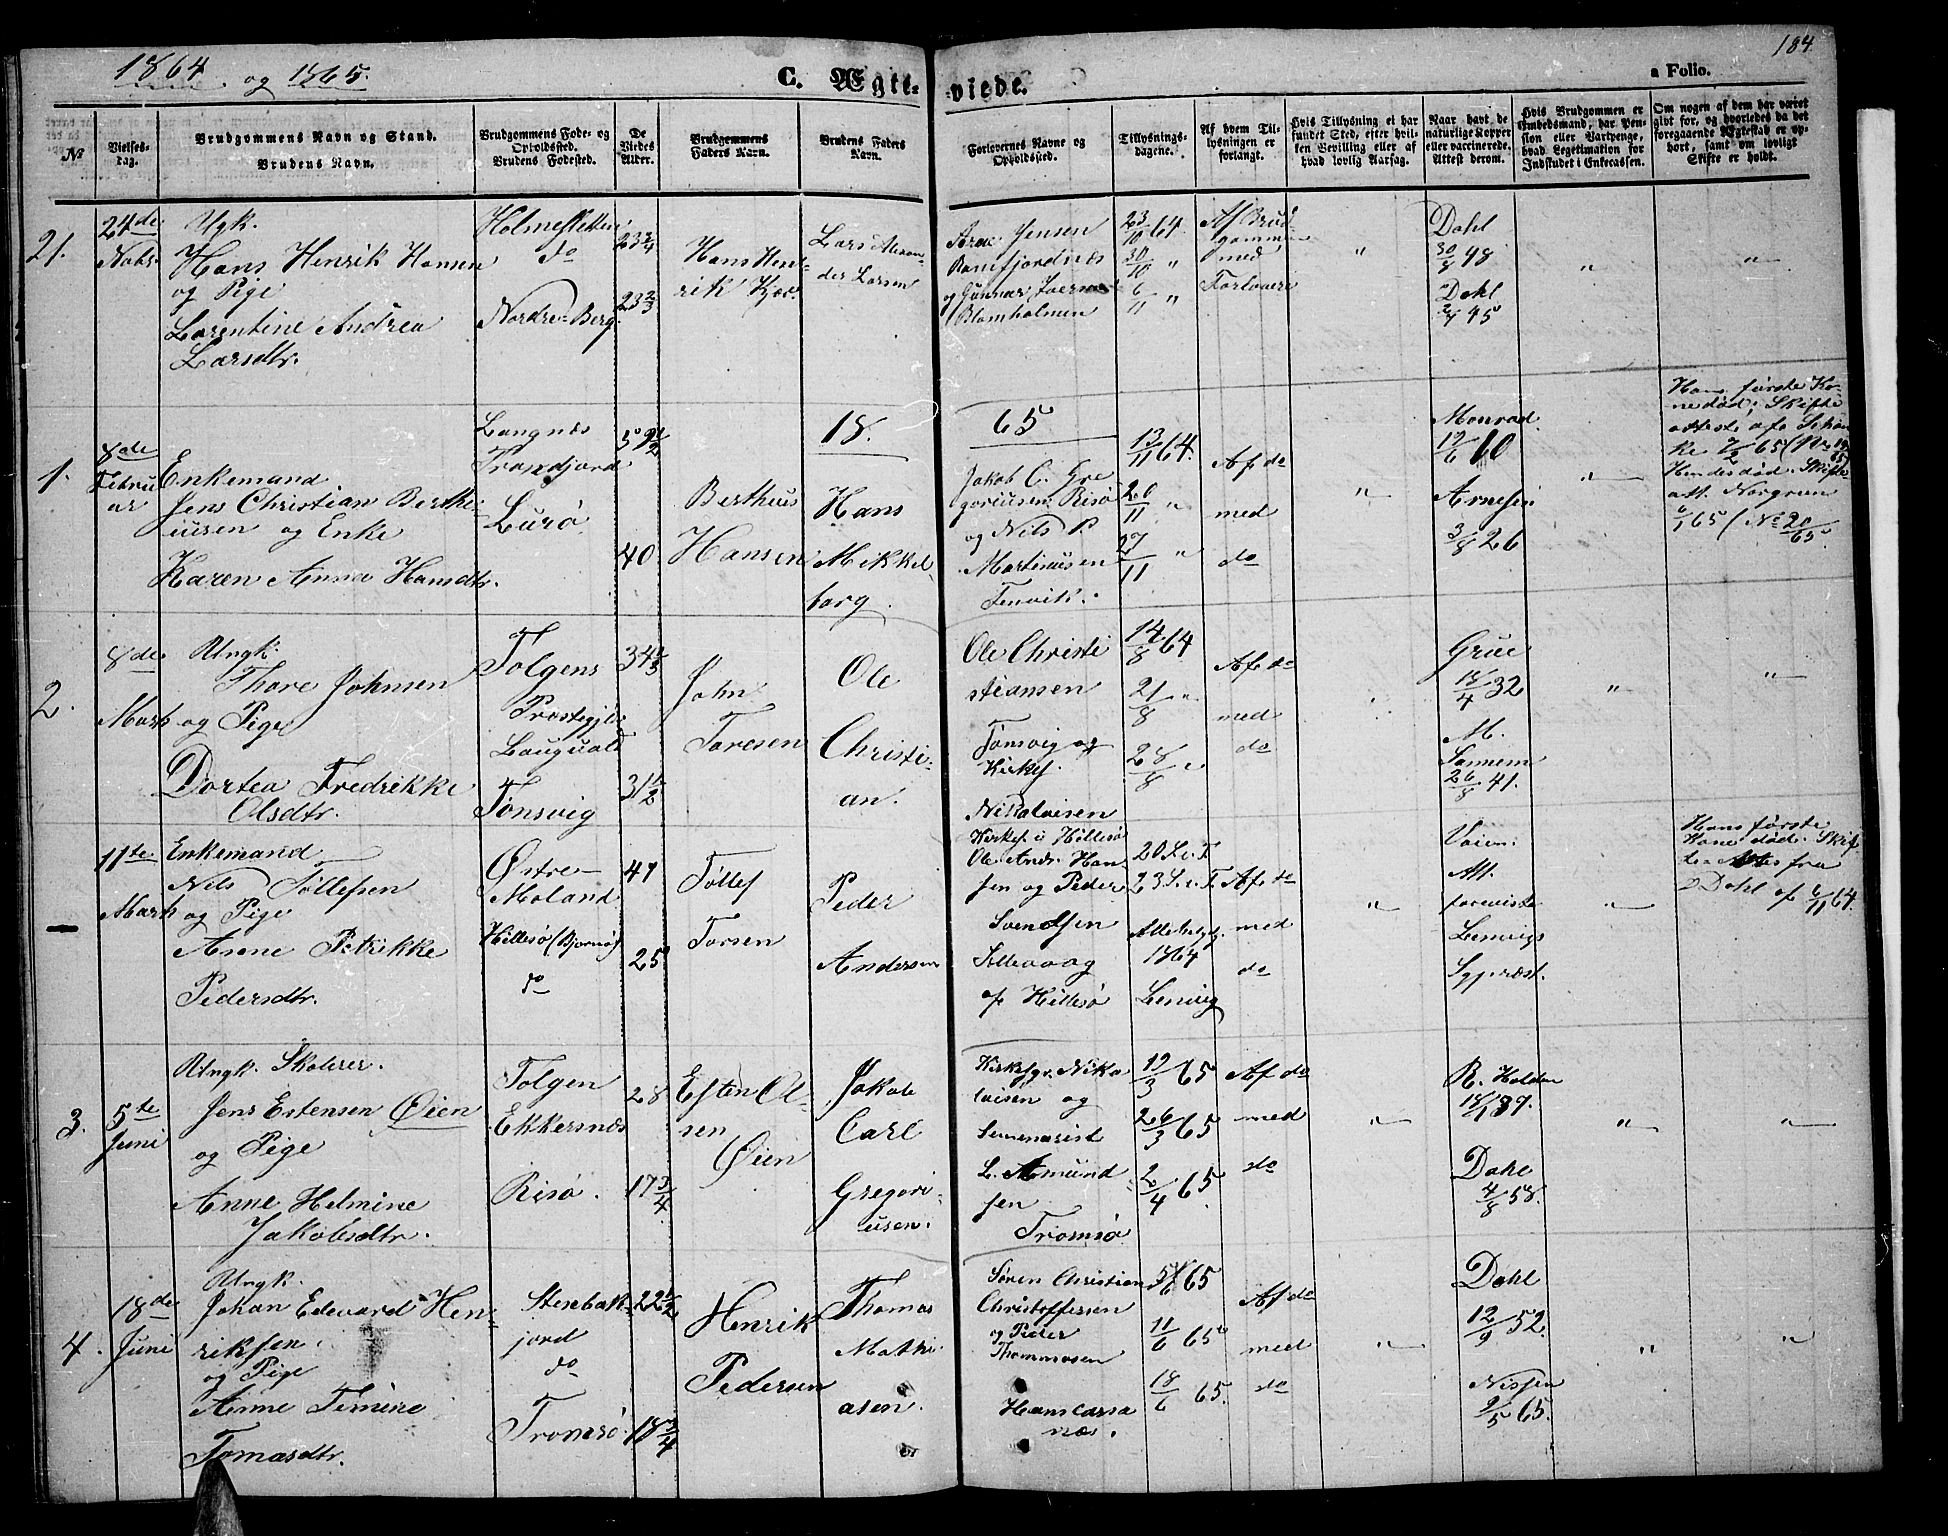 1864 og 1865.
C. Ægte-
viede.
184.
a Folio.
No
Vielses-
dag.
Brudgommens Navn og Stand.
Brudens Navn.
Brudgommens Føde- og
Opholdssted.
Brudens Fødested.
De
Viedes
Alder.
Brudgommens
Faders Navn.
Brudens Faders
Navn.
Forlovernes Navne og
Opholdssted.
Tillysnings-
dagene.
Af hvem Til-
lysningen er
forlangt.
Hvis Tillysning ei har
fundet Sted, efter hvil-
ken Bevilling eller af
hvad lovlig Aarsag.
Naar havt de
naturlige Kopper
eller vaccinerede.
Attest derom.
Hvis Brudgommen er
Embedsmand, har Pen-
sion eller Vartpenge,
hvad Legitimation for
Indskudet i Enkecassen.
Om nogen af dem har været
givt før, og hvorledes da det
foregaaende Ægteskab er op-
hørt, samt om lovligt
Skifte er holdt.
21.
24de
Novbr.
Ugk.
Hans Henrik Hansen
og Pige
Lorentine Andrea
Larsdtr.
do
Nordre-Berg.
23 3/4
23 2/3
Hans Hen-
rik Kjær
Lars Alexan-
der Larsen
Arne Jensen
og Gunnar
23/10 64.
30/10 "
6/11 "
Af Brud
gommen
med
Forlovere
"
Dahl
30/8 48
Dahl
45
"
"
18.
65
1.
8de
Febru
ar
Enkemand
Jens Christian Berthe-
iusen og Enke
Karen Anna Hansdtr.
Langnæs
Lurø
59 1/2
40
Berthus
Hansen
Hans
Mikkel-
borg.
Jakob C. Gre
goriusen Risø
og Nils P.
Martinusen
Tenvik.
13/11 64.
20/11 "
27/11 "
Af do
med
do
"
Monrad.
12/6 10
Arnesen
3/8 26
"
Hans første Ko-
ne død; Skifte
attest af
65
Hendes død. Skifte
att. Norgren
6/1 65 (No 20/65.
2.
8de
Marts
Ungk.
Thore Johnsen
og Pige
Dortea Fredrikke
Olsdtr.
Tolgens
Præstegjeld
Tonsvig
34 1/3
31 1/2
John
Toresen
Ole
Christi-
an.
Ole Christi
stiansen
Tonsvig og
Kirkes.
Nikolaisen
14/8 64
21/8 "
28/8 "
Af do
med
do
"
Grue
18/4 32
M.
26/8 41.
"
"
11te
Marts
Enkemand
Nils Tøllefsen
og Pige
Anne Petrikke
Pedersdtr.
Østre-
Moland
Hillesø (Bjornø)
do
47
25
Tøllef
Torsen
Peder
Andersen
Kirkes. i Hillesø
Ole Andr. Han-
sen og Peder
Svendsen
af Hillesø
20 S. e. T.
23 S. e. T.
1864
Lenvig
Af do
med
do
"
Att.
foreviste
Lenvigs
Sgpræst.
"
Hans første
Kone død. Skif-
fra
Dahl af 6/11 64.
3.
5te
Juni
Ungk. Skolerer.
Jens Estensen Øien
og Pige
Anne Helmine
Jakobsdtr.
Tolgen
Ekkersnæs
Risø.
28
17 3/4
Esten Ol-
sen
Øien
Jakob
Carl
Gregori-
usen.
Kirksgr. Niko
laisen og
Semenarist
L. Amund
sen
Tromsø
19/3 65
26/3 65
2/4 65
Af do
med
do
"
R. Holden
39.
Dahl
4/8 58.
"
"
4.
18de
Juni
Ungk.
Johan Edevard Hen-
riksen
og Pige
Anne Temine
Tomasdtr.
Stenbak-
jord
do
Tromsø
22 1/2
18 3/4
Henrik
Pedersen
Thomas
Mathi
asen.
Søren Christian
Christoffersen
og Peder
Thommasen
Hans Larsa
næs.
5/6 65
11/6 65
18/6 65.
Af do
med
do
"
Dahl
12/9 52.
Nissen
2/5 65.
"
"